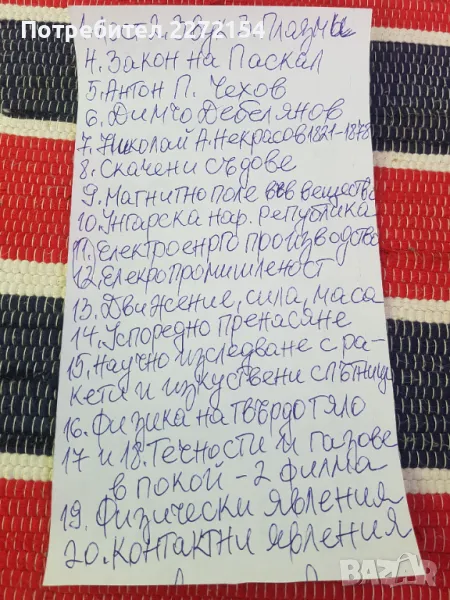 Потребител 2272154
3. Плазма
4. Закон на Паскал
5. Антон П. Чехов
6. Димчо Дебелянов
7. Николай А. Некрасов 1821-1878
8. Скачени съдове
9. Магнитно поле във вещество
10. Унгарска нар. Република
11. Електроенрго производство
12. Елекропромишленост
13. Движение, сила, маса
14. Успоредно пренасяне
15. Научно изследване с ра-
кети и изкуствени спътници
16. Физика на твърдо тяло
17 и 18. Течности и газове
в покой - 2 филма
19. Физически явления
20. Контактни явления
bazar